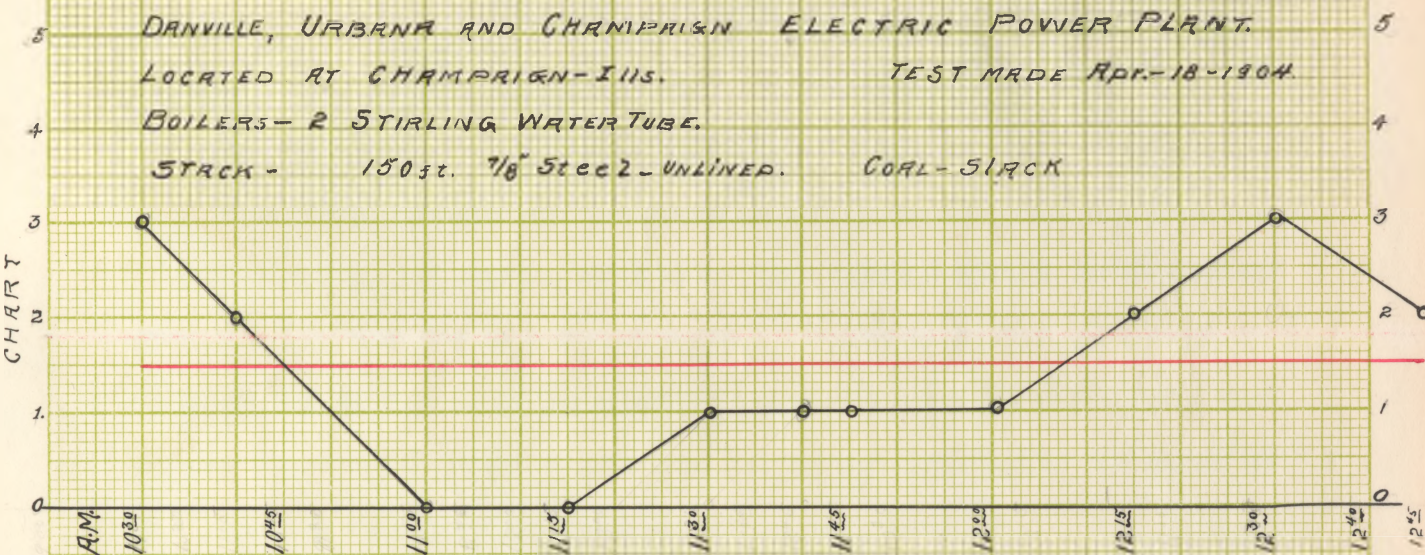 DANVILLE, URBANA AND CHAMPAIGN ELECTRIC POWER PLANT.
LOCATED AT CHAMPAIGN-Ills. TEST MADE Apr.-18-1904.
BOILERS- 2 STIRLING WATER TUBE.
STACK- 150 ft. 7/8" Steel-UNLINED. COAL-SLACK
CHART
5
4
3
2
1.
0
5
4
3
2
1
0
A.M. 10 30 10 45 11 00 11 15 11 30 11 45 12 00 12 15 12 30 12 40 12 45